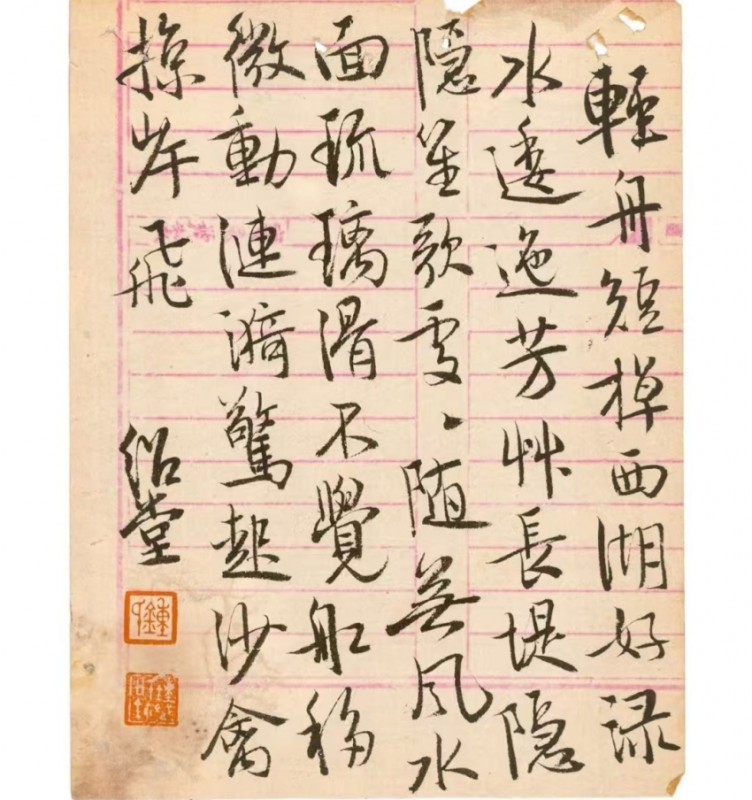 輕舟短棹西湖好渌
水逶迤芳艸長堤隱
隱笙歌處、随無風水
面琉璃滑不覺船移
微動漣漪驚起沙禽
掠岸飛
紹堂